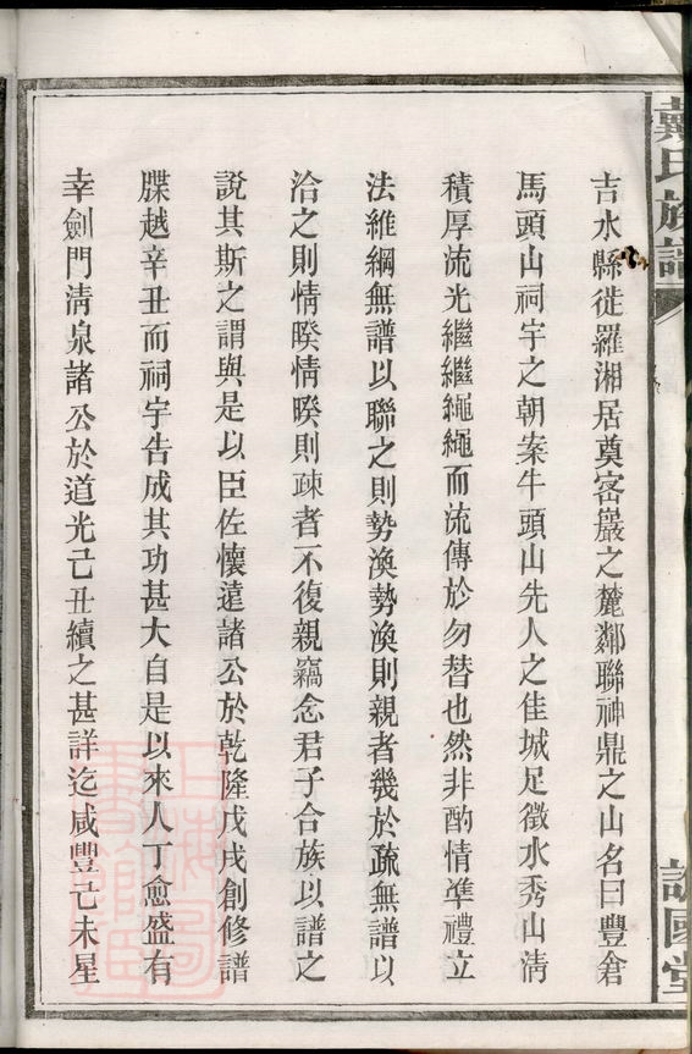 戴氏族譜
吉水縣徙羅湘居奠密巖之麓鄰聯神鼎之山名曰豐倉
馬頭山祠宇之朝案牛頭山先人之佳城足徵水秀山清
積厚流光繼繼繩繩而流傳於勿替也然非酌情準禮立
法維綱無譜以聯之則勢渙勢渙則親者幾於疏無譜以
洽之則情暌情暌則疎者不復親竊念君子合族以譜之
說其斯之謂與是以臣佐懷遠諸公於乾隆戊戌創修譜
牒越辛丑而祠宇告成其功甚大自是以來人丁愈盛有
幸劍門清泉諸公於道光己丑續之甚詳迄咸豐己未星
國堂
上海圖書館藏